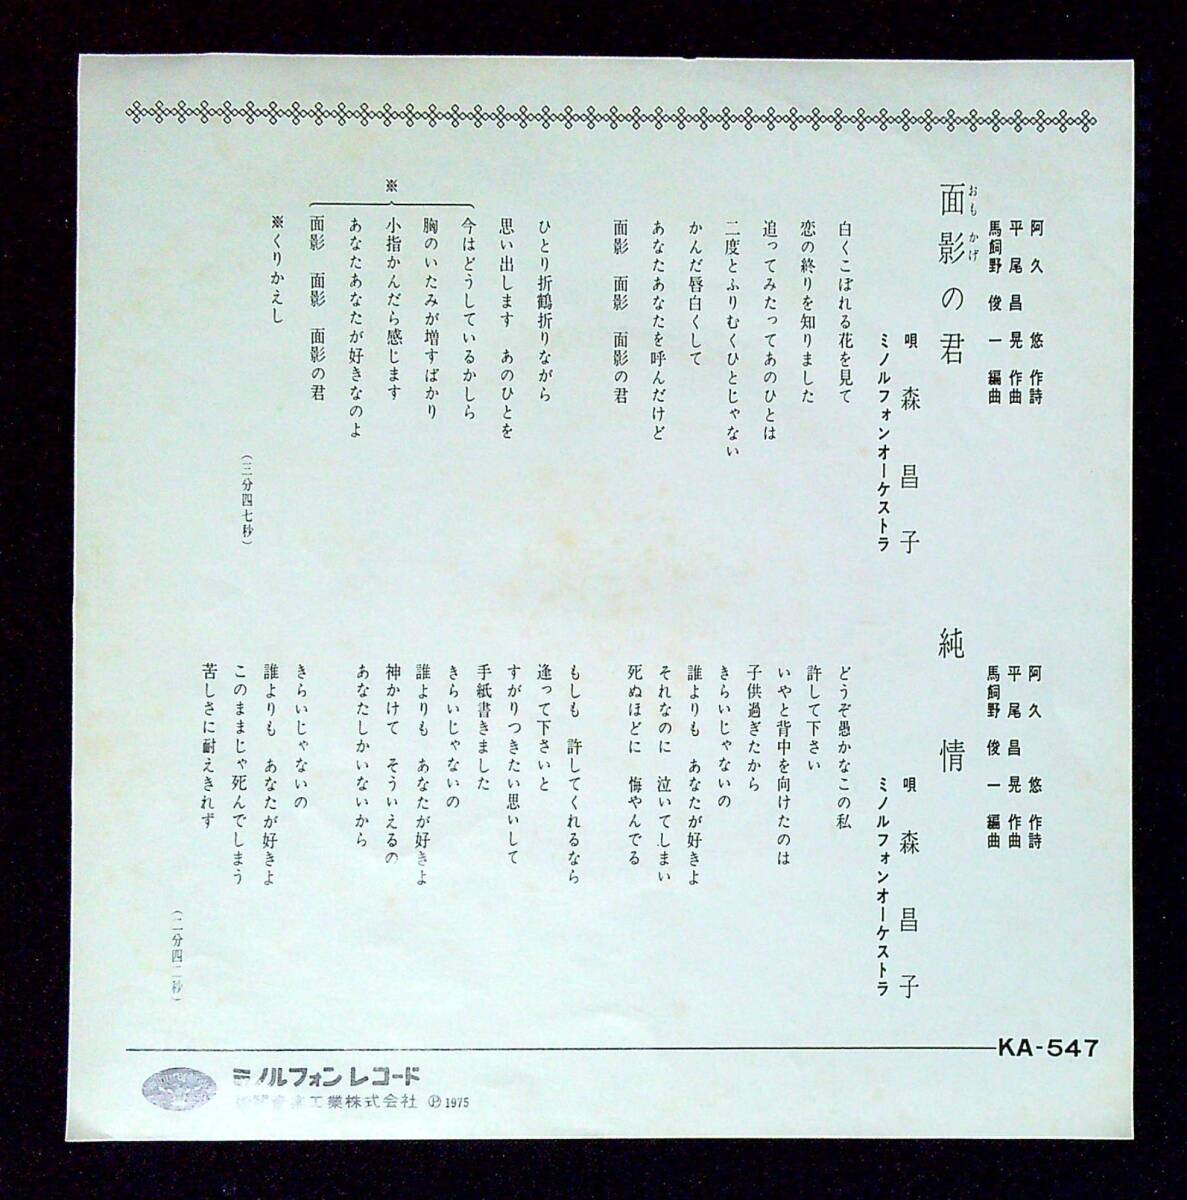 阿久悠 作詩
平尾昌晃 作曲
馬飼野俊一 編曲
面影の君
おも かげ
唄 森昌子
ミノルフォンオーケストラ
白くこぼれる花を見て
恋の終りを知りました
追ってみたってあのひとは
二度とふりむくひとじゃない
かんだ唇白くして
あなたあなたを呼んだけど
面影 面影 面影の君
ひとり折鶴折りながら
思い出します あのひとを
※
今はどうしているかしら
胸のいたみが増すばかり
小指かんだら感じます
あなたあなたが好きなのよ
面影 面影 面影の君
※くりかえし
(三分四七秒)
阿久悠 作詩
平尾昌晃 作曲
馬飼野俊一 編曲
純情
唄 森昌子
ミノルフォンオーケストラ
どうぞ愚かなこの私
許して下さい
いやと背中を向けたのは
子供過ぎたから
きらいじゃないの
誰よりも あなたが好きよ
それなのに 泣いてしまい
死ぬほどに 悔やんでる
もしも 許してくれるなら
逢って下さいと
すがりつきたい思いして
手紙書きました
きらいじゃないの
誰よりも あなたが好きよ
神かけて そういえるの
あなたしかいないから
きらいじゃないの
誰よりも あなたが好きよ
このままじゃ死んでしまう
苦しさに耐えきれず
(二分四二秒)
KA-547
ミノルフォンレコード
音楽工業株式会社 Ⓟ 1975